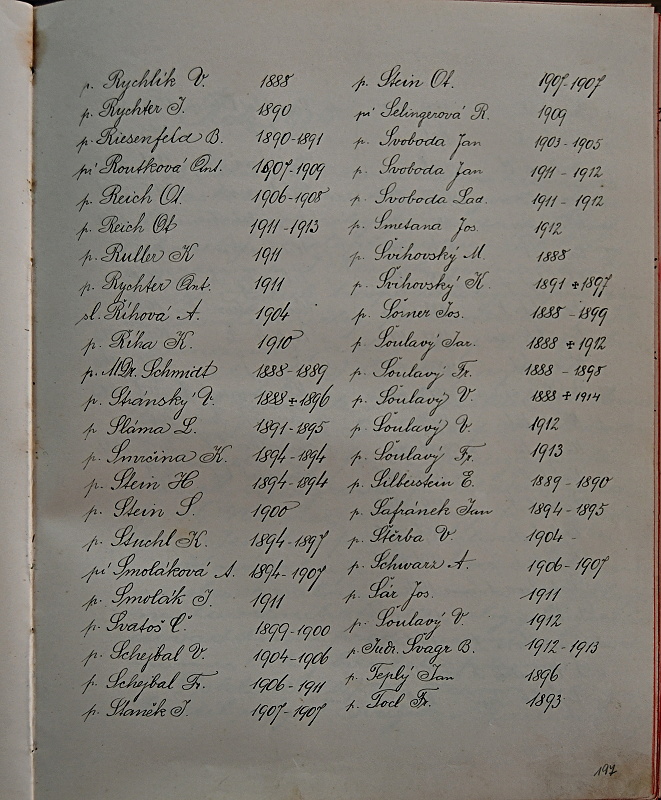 p. Rychlík V. 1888
p. Rychter J. 1890
p. Riesenfeld B. 1890-1891
pí Routková Ant. 1907-1909
p. Reich Ot. 1906-1908
p. Reich Ot 1911-1913
p. Ruller K 1911
p. Rychter Ant. 1911
sl. Říhová A. 1904
p. Říha K. 1910
p. MDr. Schmidt 1888-1889
p. Stránský V. 1888 ✠ 1896
p. Sláma L. 1891-1895
p. Smrčina K. 1894-1894
p. Stein H 1894-1894
p. Stein S. 1900
p. Stuchl K. 1894-1897
pí Smoláková A. 1894-1907
p. Smolák J. 1911
p. Svatoš Č. 1899-1900
p. Schejbal V. 1904-1906
p. Schejbal Fr. 1906-1911
p. Staněk J. 1907-1907
p. Stein Ot. 1907-1907
pí Selingerová R. 1909
p. Svoboda Jan 1903-1905
p. Svoboda Jan 1911-1912
p. Svoboda Lad. 1911-1912
p. Smetana Jos. 1912
p. Švihovský M. 1888
p. Švihovský K. 1891 ✠ 1897
p. Šorner Jos. 1888-1899
p. Šoulavý Jar. 1888 ✠ 1912
p. Šoulavý Fr. 1888-1898
p. Šoulavý V. 1888 ✠ 1914
p. Šoulavý V. 1912
p. Šoulavý Fr. 1913
p. Silberstein E. 1889-1890
p. Šafránek Jan 1894-1895
p. Štěrba V. 1904 -
p. Schwarz A. 1906-1907
p. Šár Jos. 1911
p. Šoulavý V. 1912
p. Judr. Švagr B. 1912-1913
p. Teplý Jan 1896
p. Tocl Fr. 1893
197